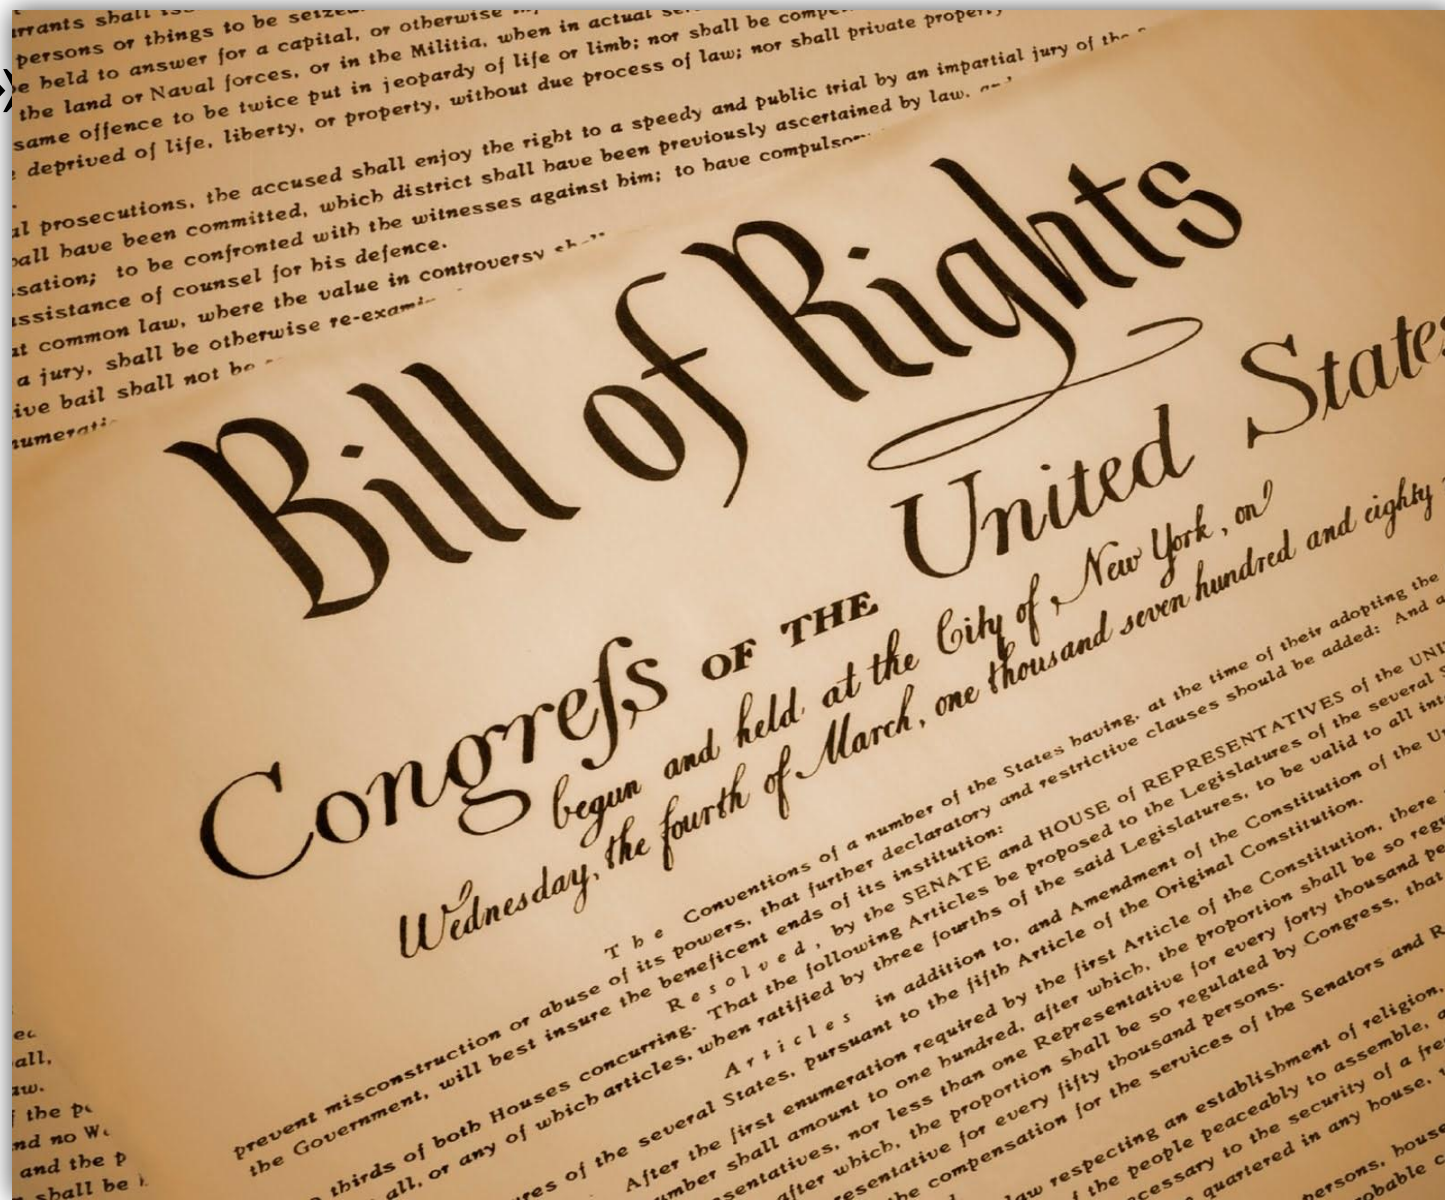 arrants shall
persons or things to be seized
be held to answer for a capital, or otherwise
the land or Naval forces, or in the Militia, when in actual
same offence to be twice put in jeopardy of life or limb; nor shall be
deprived of life, liberty, or property, without due process of law; nor shall private property
al prosecutions, the accused shall enjoy the right to a speedy and public trial by an impartial jury of the
hall have been committed, which district shall have been previously ascertained by law,
sation; to be confronted with the witnesses against him; to have compulsory
assistance of counsel for his defence.
at common law, where the value in controversy shall
a jury, shall be otherwise re-exami
ive bail shall not be
numerati
Bill of Rights
Congreſs OF THE United States
begun and held at the City of New York, on
Wednesday, the fourth of March, one thousand seven hundred and eighty
The Conventions of a number of the States having, at the time of their adopting the
prevent misconstruction or abuse of its powers, that further declaratory and restrictive clauses should be added: And
the Government, will best insure the beneficent ends of its institution:
Resolved, by the SENATE and HOUSE of REPRESENTATIVES of the UNI
thirds of both Houses concurring. That the following Articles be proposed to the Legislatures of the several
all, or any of which articles, when ratified by three fourths of the said Legislatures, to be valid to all int
Articles in addition to, and Amendment of the Constitution of the
res of the several States, pursuant to the fifth Article of the Original Constitution.
After the first enumeration required by the first Article of the Constitution, there
umber shall amount to one hundred, after which, the proportion shall be so regu
sentatives, nor less than one Representative for every forty thousand pe
after which, the proportion shall be so regulated by Congress, that
resentative for every fifty thousand persons.
he compensation for the services of the Senators and R
law respecting an establishment of religion,
the people peaceably to assemble,
ecessary to the security of a fre
quartered in any house,
persons, hous
robable c
all,
aw.
the pe
nd no W
and the p
shall be